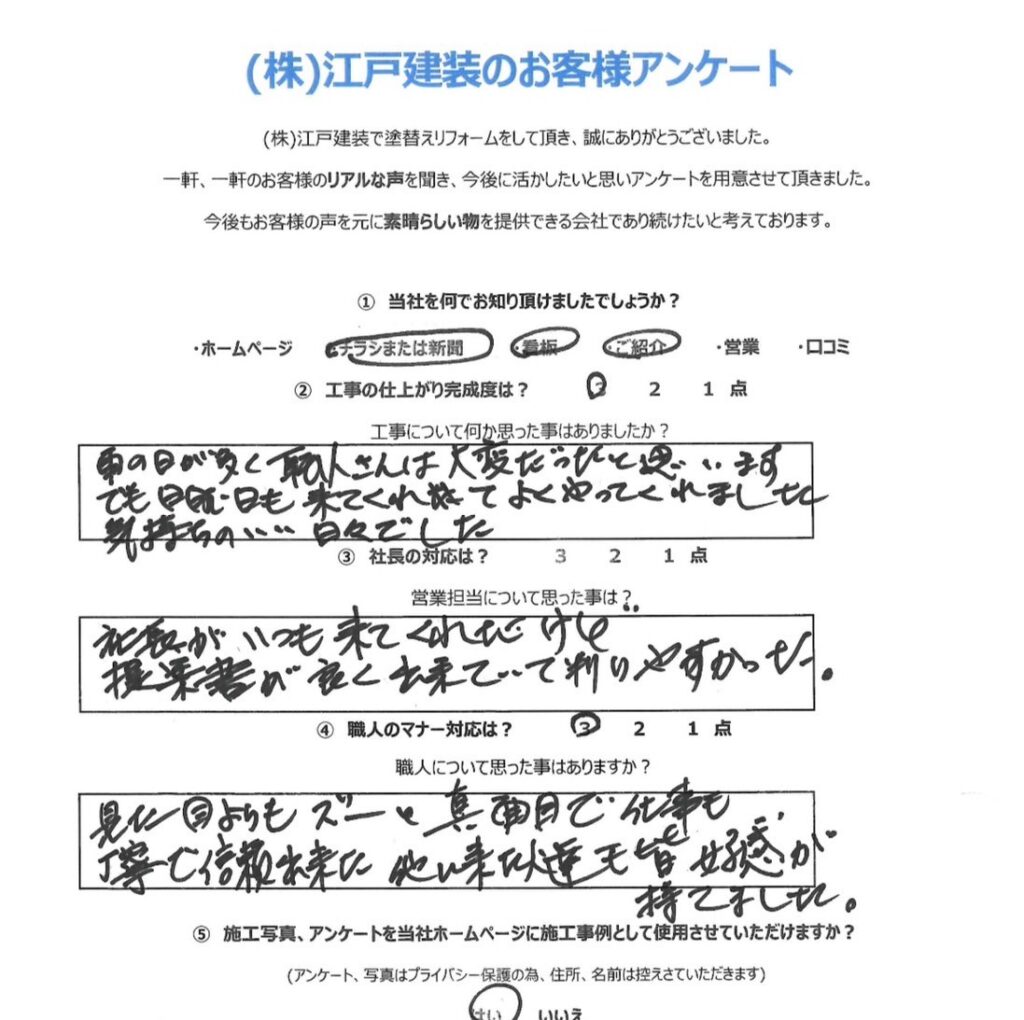 (株)江戸建装のお客様アンケート
(株)江戸建装で塗替えリフォームをして頂き、誠にありがとうございました。
一軒、一軒のお客様のリアルな声を聞き、今後に活かしたいと思いアンケートを用意させて頂きました。
今後もお客様の声を元に素晴らしい物を提供できる会社であり続けたいと考えております。
① 当社を何でお知り頂けましたでしょうか？
・ホームページ ・チラシまたは新聞 ・看板 ・ご紹介 ・営業 ・口コミ
② 工事の仕上がり完成度は？ 3 2 1 点
工事について何か思った事はありましたか？
雨の日が多く職人さんは大変だったと思います
でも 日曜日も 来てくれ よくやってくれました
気持ちのいい 日々でした
③ 社長の対応は？ 3 2 1 点
営業担当について思った事は？
社長が いつも 来てくれたけど
提案書が 良く出来ていて判りやすかった。
④ 職人のマナー対応は？ 3 2 1 点
職人について思った事はありますか？
見た目よりも ズーと 真面目で 仕事も
丁寧で信頼出来た 他に来た人達も皆 好感が
持てました。
⑤ 施工写真、アンケートを当社ホームページに施工事例として使用させていただけますか？
(アンケート、写真はプライバシー保護の為、住所、名前は控えさていただきます)
はい いいえ